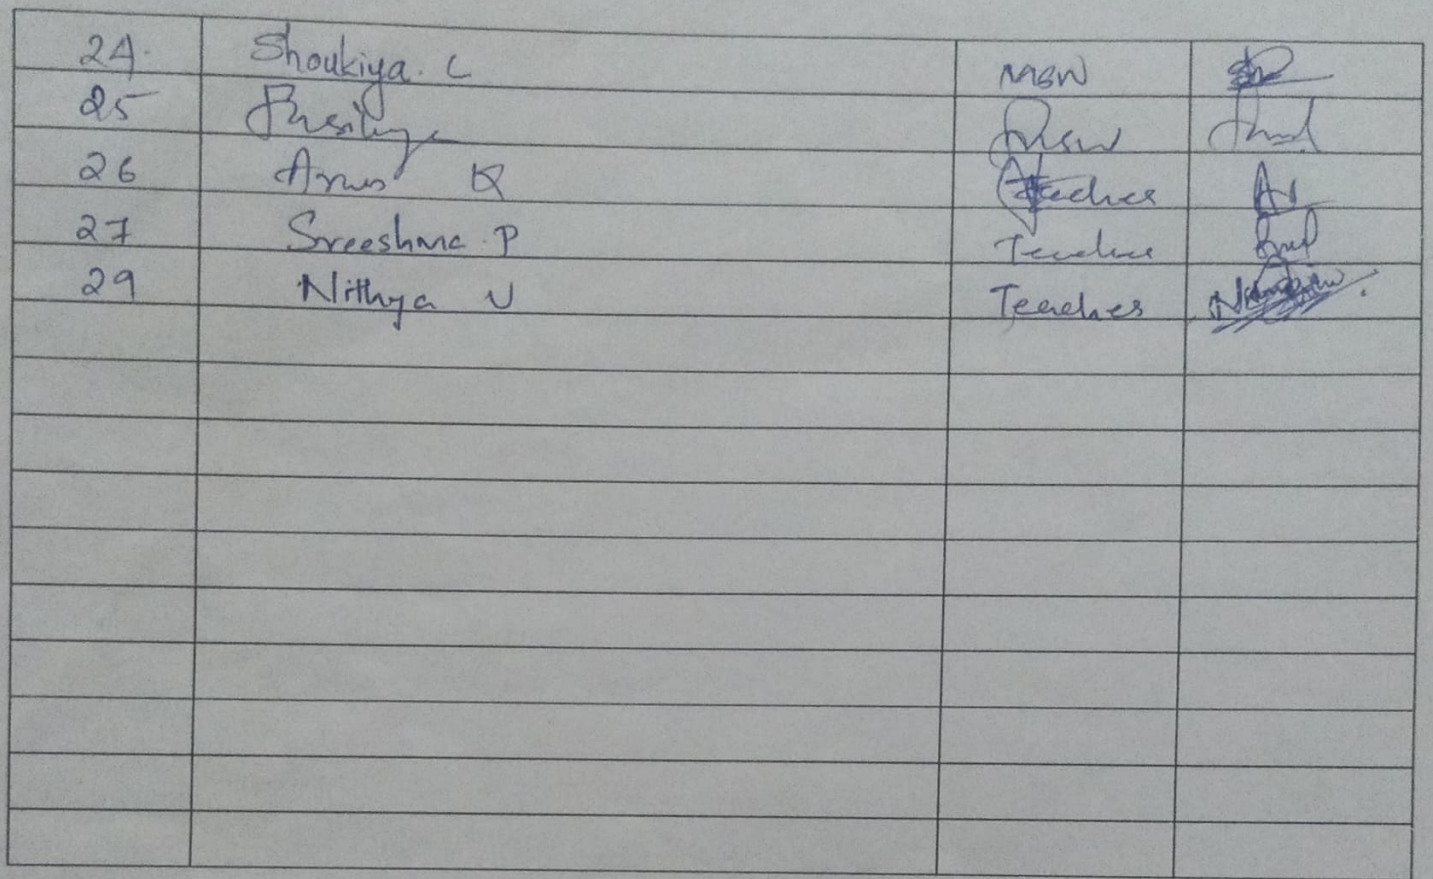 24. Shoukiya. C MSW
25 MSW
26 K Teacher
27 Sreeshma. P Teacher
29 Nithya V Teacher